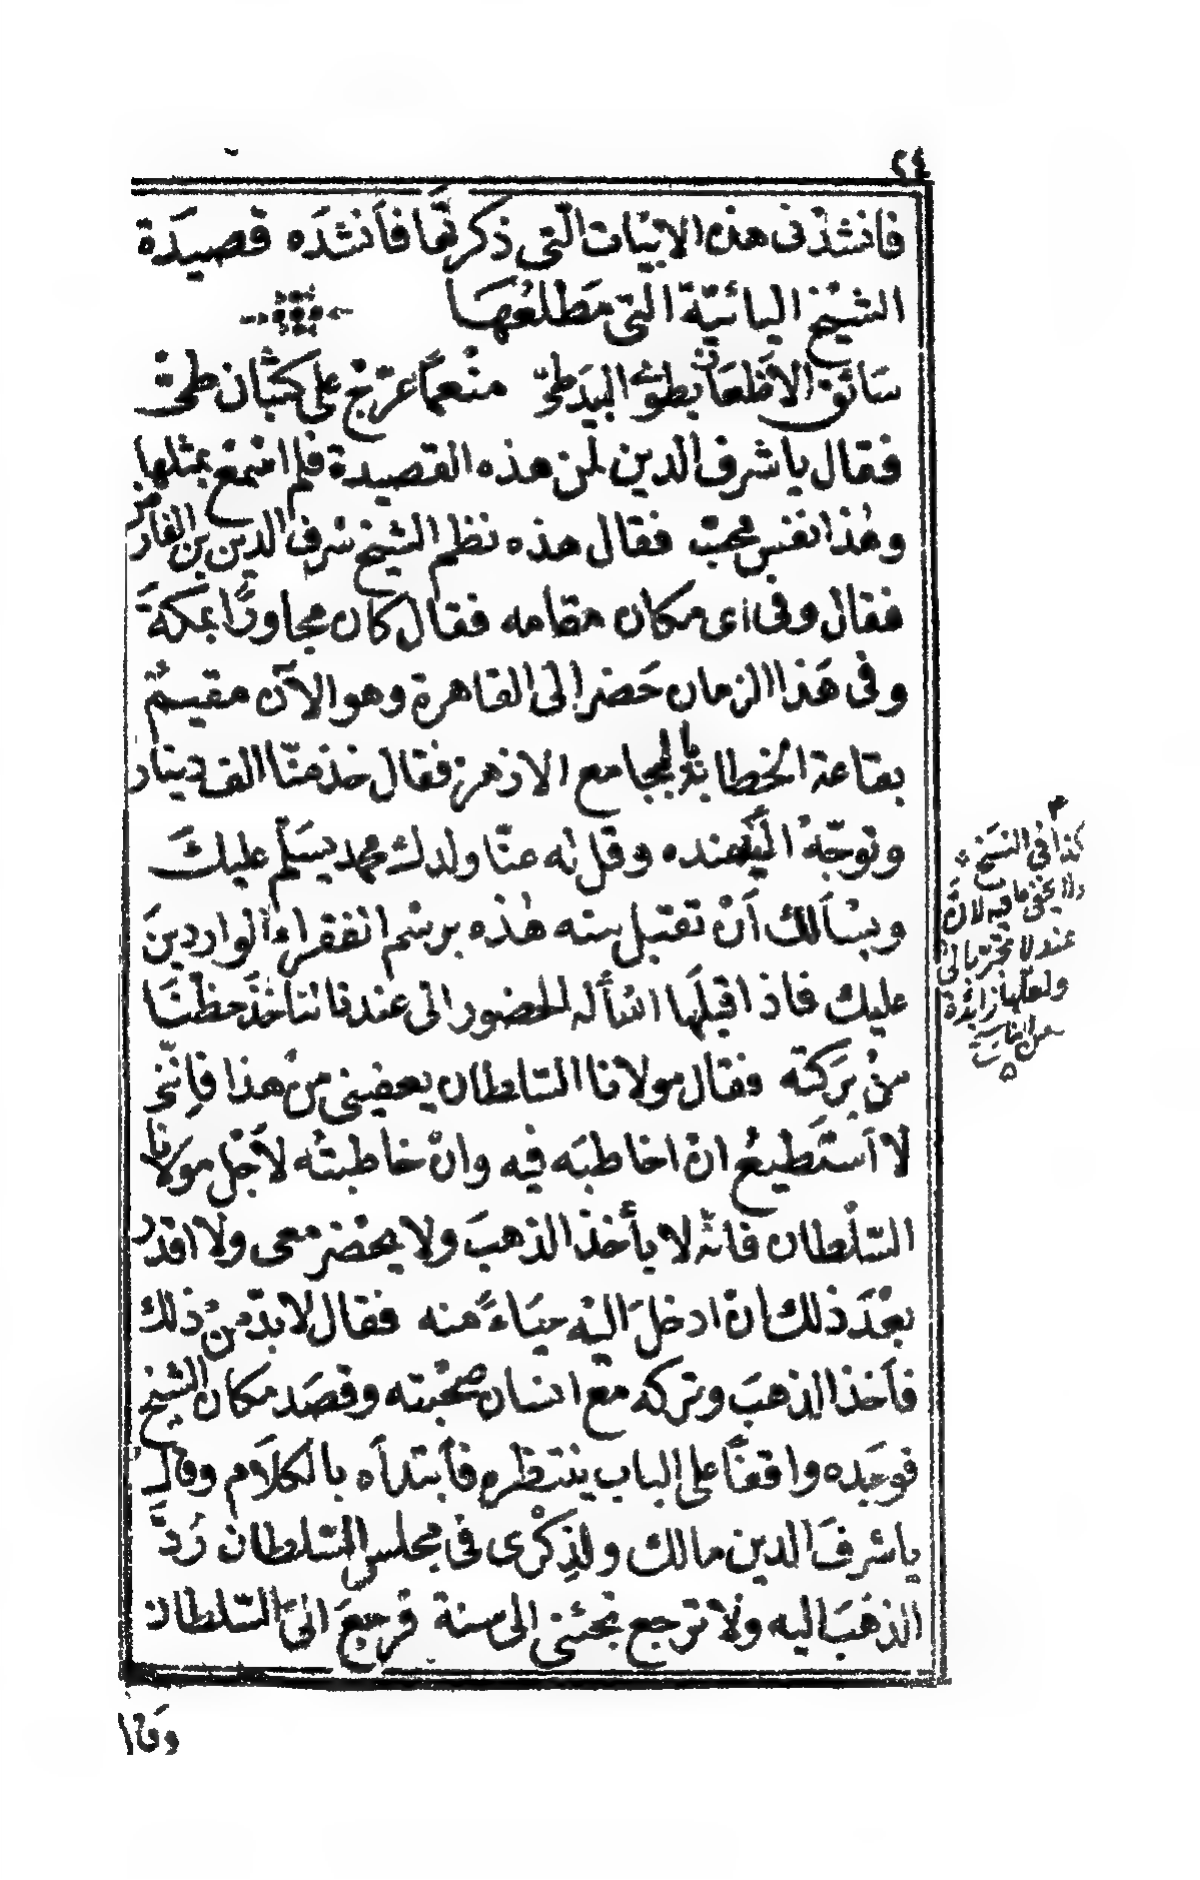 ٢٤
فانشدنى هذه الابيات التى ذكرتها فانشده قصيدة
الشيخ اليائية التى مطلعها
سائق الاظعان يطوى البيد طى منعما عرج على كثبان طى
فقال يا شرف الدين لمن هذه القصيدة فلم اسمع بمثلها
وهذا نفس محب فقال هذه نظم الشيخ شرف الدين بن الفارض
فقال وفى اى مكان مقامه فقال كان مجاورا بمكة
وفى هذا الزمان حضر الى القاهرة وهو الآن مقيم
بقاعة الخطابة بالجامع الازهر فقال خذ منا الف دينار
وتوجه اليه عنده وقل له عنا ولدك محمد يسلم عليك
ويسألك أن تقبل منه هذه برسم الفقراء الواردين
عليك فاذا قبلها اسأله الحضور الى عندنا لنأخذ حظنا
من بركته فقال مولانا السلطان يعفينى من هذا فإنى
لا استطيع ان اخاطبه فيه وان خاطبته لاجل مولانا
السلطان فانه لا يأخذ الذهب ولا يحضر معى ولا اقدر
بعد ذلك ان ادخل اليه حياء منه فقال لا بد من ذلك
فأخذ الذهب وتركه مع انسان صحبته وقصد مكان الشيخ
فوجده واقفا على الباب ينتظره فأبتدأه بالكلام وقال
يا شرف الدين مالك ولذكرى فى مجلس السلطان رد
الذهب اليه ولا ترجع تجئنى الى سنة فرجع الى السلطان
كذا فى النسخ
ولا يخفى ما فيه لان
عند لا تجر بالى
ولعلها زائدة
من الناسخ
وقال